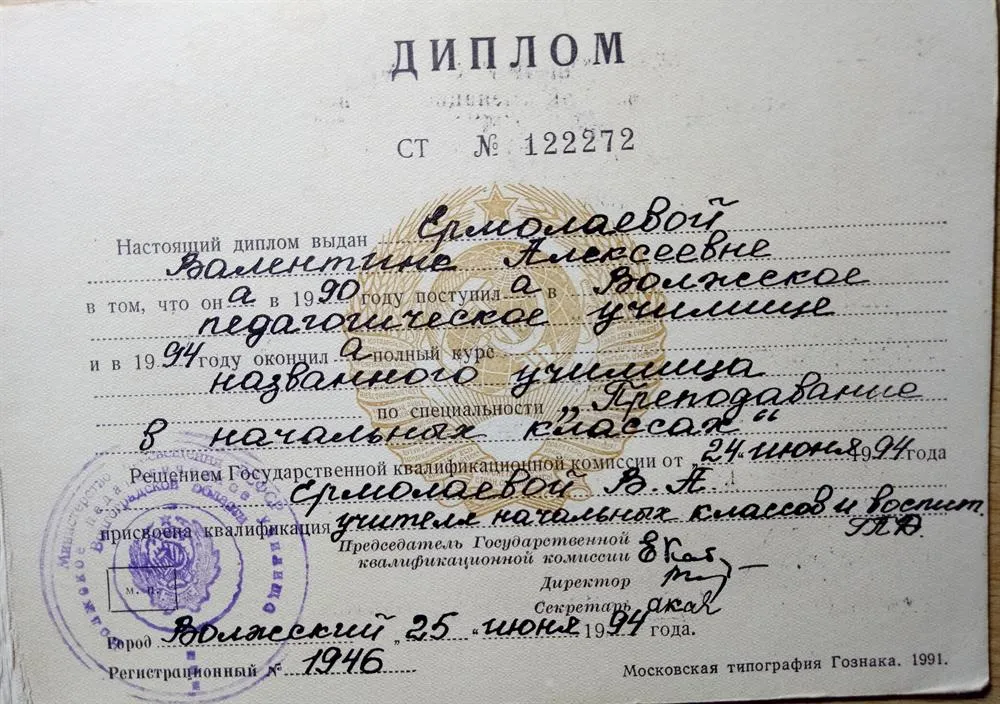 ДИПЛОМ
СТ № 122272
Настоящий диплом выдан Ермолаевой
Валентине Алексеевне
в том, что она в 1990 году поступила в Волжское
педагогическое училище
и в 1994 году окончила полный курс
названного училища
по специальности „Преподавание
в начальных классах“
Решением Государственной квалификационной комиссии от „24“ июня 1994 года
Ермолаевой В.А
присвоена квалификация учителя начальных классов и воспит.
ГПД.
Председатель Государственной
квалификационной комиссии
Директор
Секретарь
М. П.
Город Волжский „25“ июня 1994 года.
Регистрационный № 1946
Московская типография Гознака. 1991.
Министерство
Волгоградской области
училище